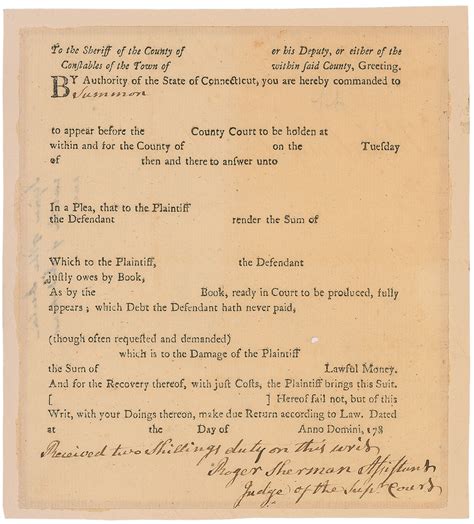 To the Sheriff of the County of or his Deputy, or either of the
Conſtables of the Town of within ſaid County, Greeting.
BY Authority of the State of Connecticut, you are hereby commanded to
Summon
to appear before the County Court to be holden at
within and for the County of on the Tueſday
of then and there to anſwer unto
In a Plea, that to the Plaintiff
the Defendant render the Sum of
Which to the Plaintiff, the Defendant
juſtly owes by Book,
As by the Book, ready in Court to be produced, fully
appears ; which Debt the Defendant hath never paid,
(though often requeſted and demanded)
which is to the Damage of the Plaintiff
the Sum of Lawful Money.
And for the Recovery thereof, with juſt Coſts, the Plaintiff brings this Suit.
[ ] Hereof fail not, but of this
Writ, with your Doings thereon, make due Return according to Law. Dated
at the Day of Anno Domini, 178
Received two Shillings duty on this writ
Roger Sherman Aſsiſtant
Judge of the Supr. Court